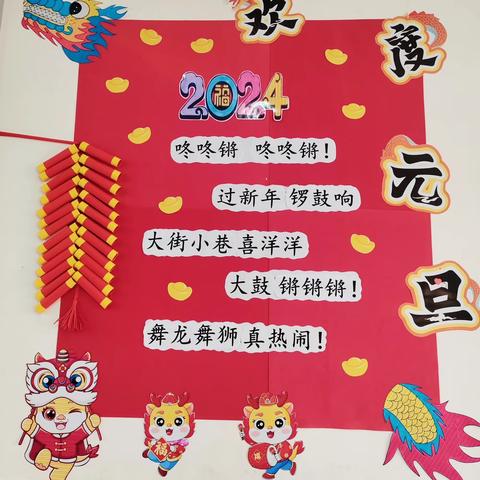 欢度元旦
2024
福
咚咚锵 咚咚锵!
过新年 锣鼓响
大街小巷 喜洋洋
大鼓 锵锵锵!
舞龙舞狮 真热闹!
福